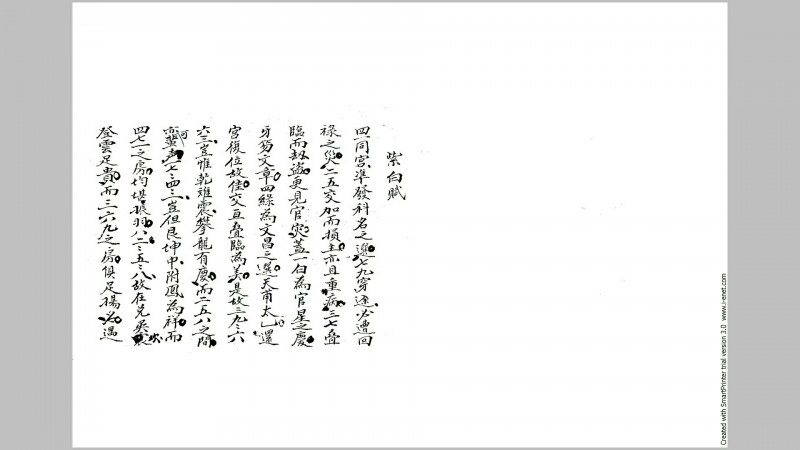 紫白賦
四一同宮準發科名之選七九穿途必遭回
祿之災二五交加而損主亦且重病三七疊
臨而劫盜更見官災蓋一白為官星之慶
牙笏文章四綠為文昌之選天甫太乙還
宮復位故佳交互疊臨為美是故三九六
六三豈惟乾離震攀龍有慶而二五八之間
亦可蜚聲一七四豈但艮坤中附鳳為祥而
四七一之房均堪振羽八二五故在兌巽坎
登雲足貴而三六九之房俱足揚名遇
Created with SmartPrinter trial version 3.0 www.i-enet.com